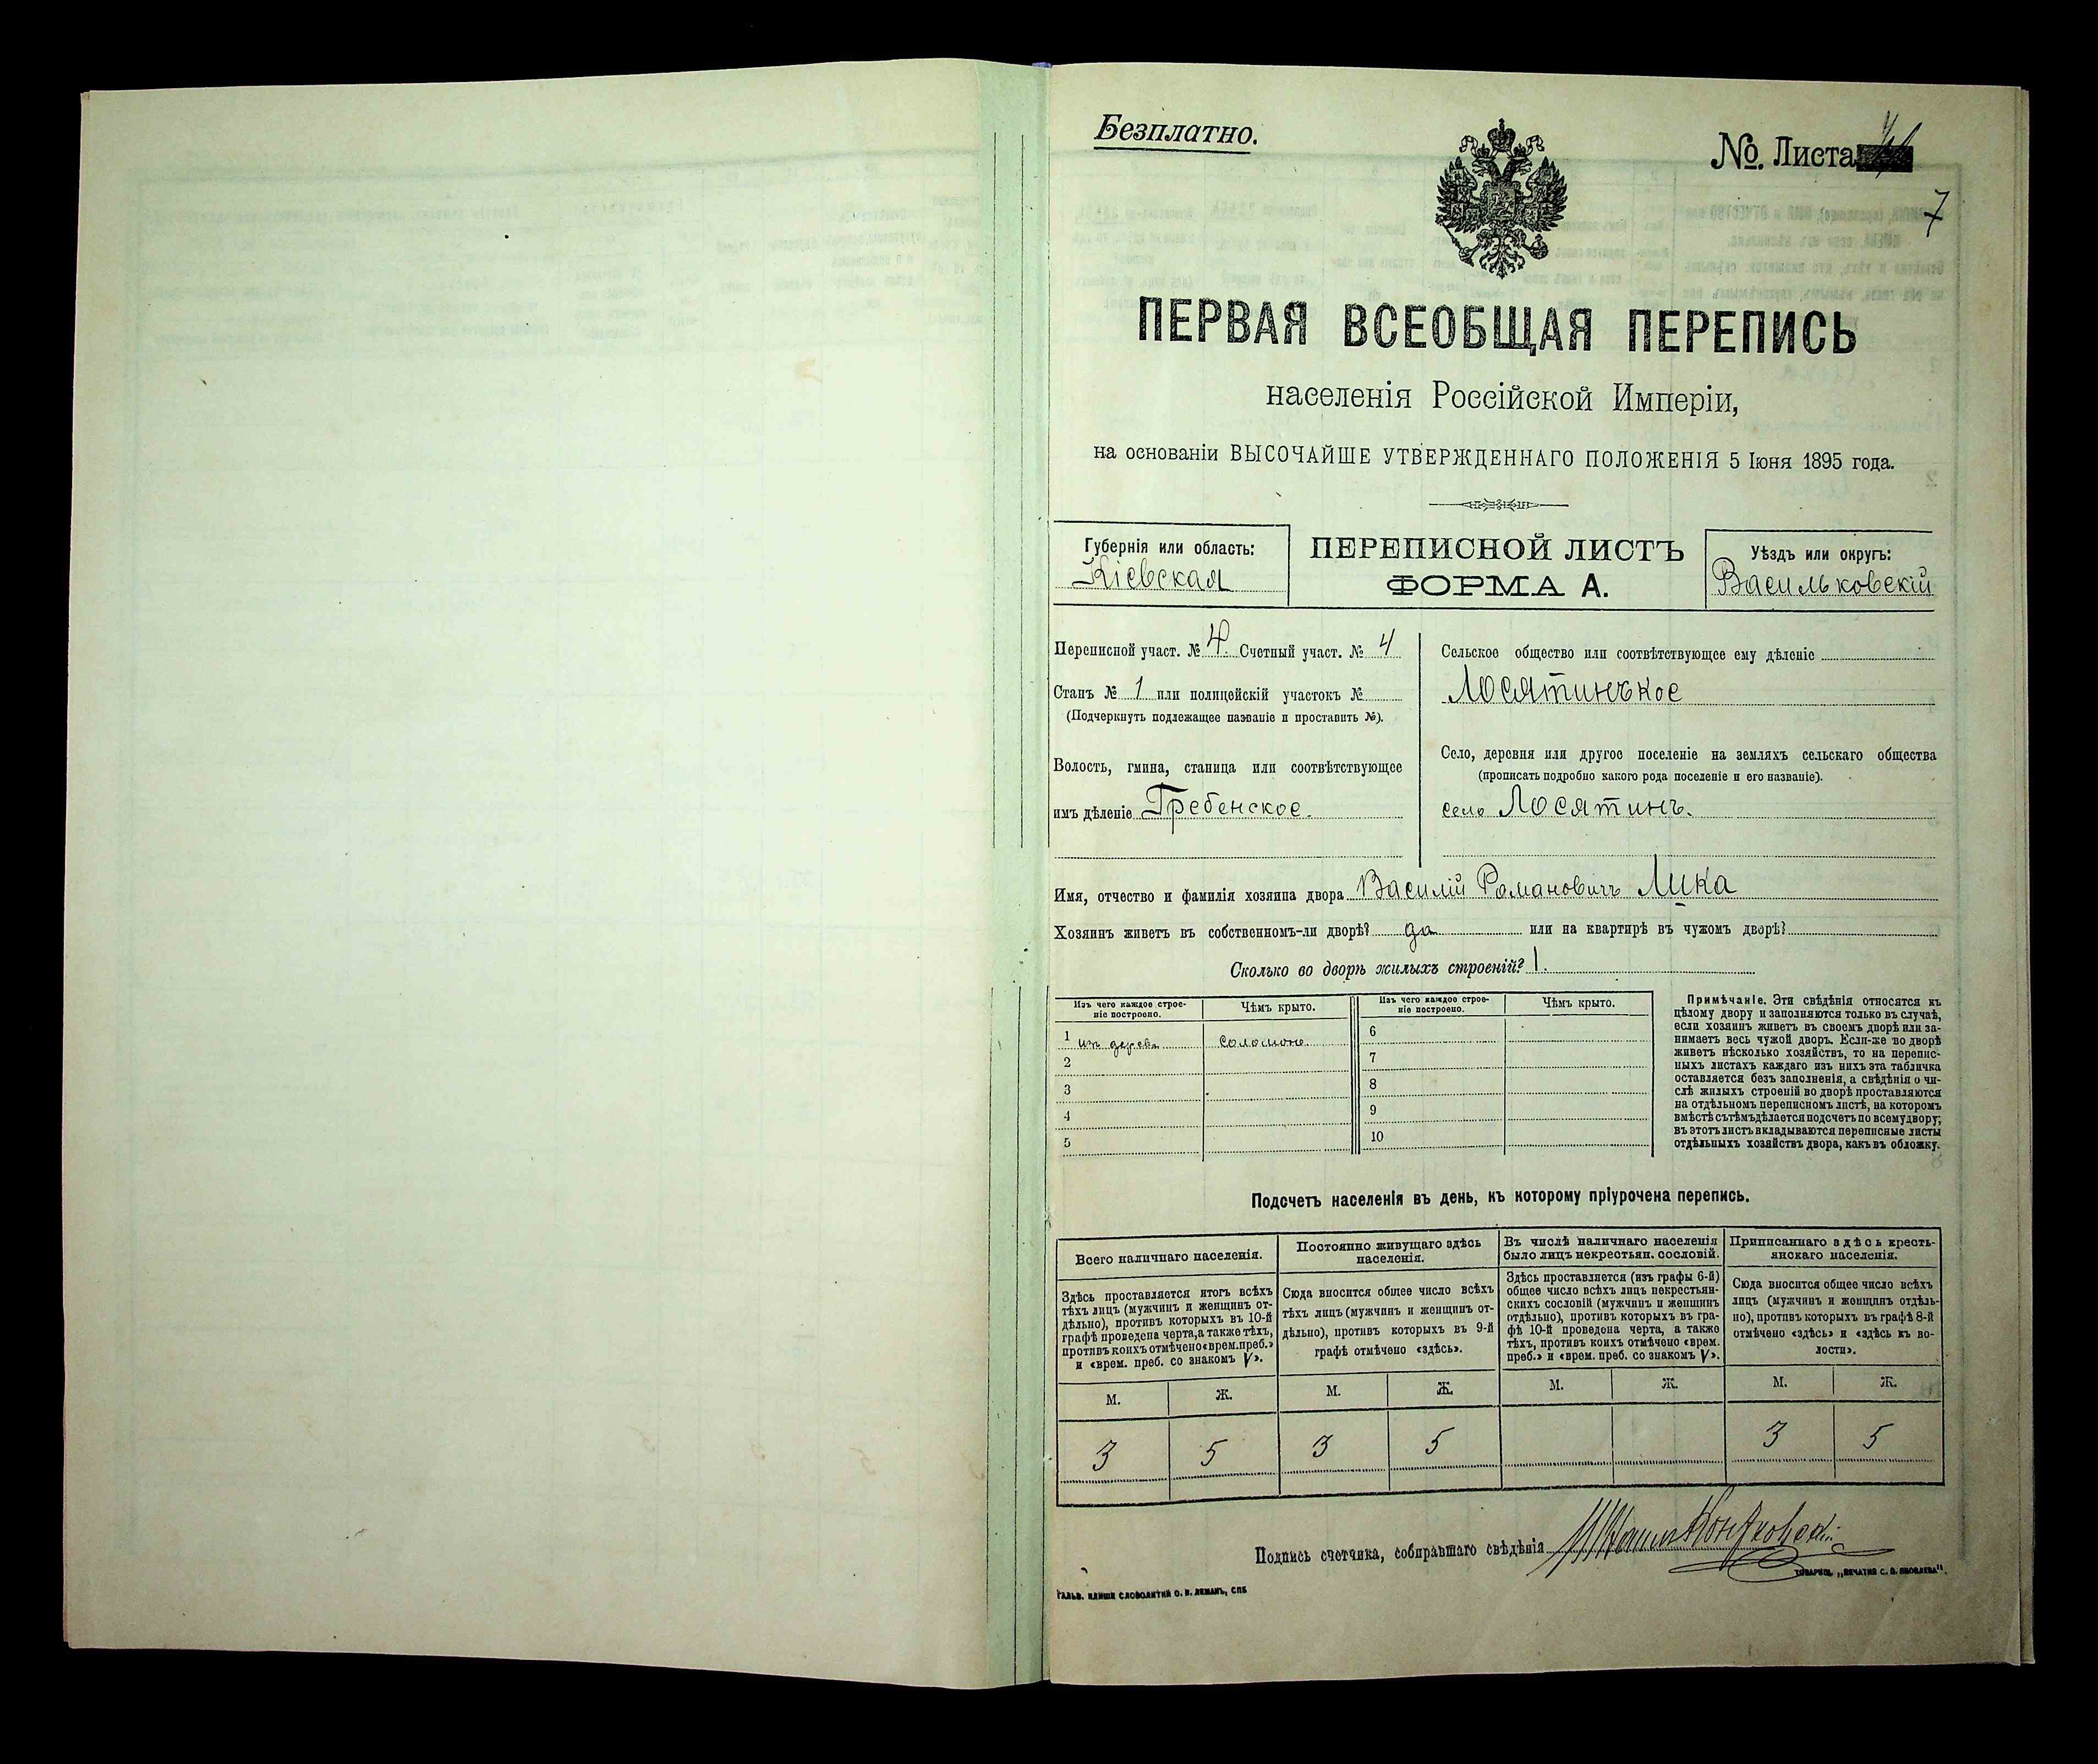 Безплатно.
№. Листа
7
ПЕРВАЯ ВСЕОБЩАЯ ПЕРЕПИСЬ
населенія Россійской Имперіи,
на основаніи ВЫСОЧАЙШЕ УТВЕРЖДЕННАГО ПОЛОЖЕНІЯ 5 Іюня 1895 года.
Губернія или область:
Кіевская
ПЕРЕПИСНОЙ ЛИСТЪ
ФОРМА А.
Уѣздъ или округъ:
Васильковскій
Переписной участ. № 4. Счетный участ. № 4
Станъ № 1 или полицейскій участокъ №
(Подчеркнуть подлежащее названіе и проставить №).
Волость, гмина, станица или соотвѣтствующее
имъ дѣленіе Гребенское.
Сельское общество или соотвѣтствующее ему дѣленіе
Лосятинъкое
Село, деревня или другое поселеніе на земляхъ сельскаго общества
(прописать подробно какого рода поселеніе и его названіе).
село Лосятинъ.
Имя, отчество и фамилія хозяина двора Василій Романовичъ Лика
Хозяинъ живетъ въ собственномъ-ли дворѣ? да или на квартирѣ въ чужомъ дворѣ?
Сколько во дворѣ жилыхъ строеній? 1.
Изъ чего каждое строе-
ніе построено.
Чѣмъ крыто.
Изъ чего каждое строе-
ніе построено.
Чѣмъ крыто.
1 изъ дерева соломою 6
2 7
3 8
4 9
5 10
Примѣчаніе. Эти свѣдѣнія относятся къ
цѣлому двору и заполняются только въ случаѣ,
если хозяинъ живетъ въ своемъ дворѣ или за-
нимаетъ весь чужой дворъ. Если-же во дворѣ
живетъ нѣсколько хозяйствъ, то на перепис-
ныхъ листахъ каждаго изъ нихъ эта табличка
оставляется безъ заполненія, а свѣдѣнія о чи-
слѣ жилыхъ строеній во дворѣ проставляются
на отдѣльномъ переписномъ листѣ, на которомъ
вмѣстѣ съ тѣмъ дѣлается подсчетъ по всему двору;
въ этотъ листъ вкладываются переписные листы
отдѣльныхъ хозяйствъ двора, какъ въ обложку.
Подсчетъ населенія въ день, къ которому пріурочена перепись.
Всего наличнаго населенія.
Здѣсь проставляется итогъ всѣхъ
тѣхъ лицъ (мужчинъ и женщинъ от-
дѣльно), противъ которыхъ въ 10-й
графѣ проведена черта, а также тѣхъ,
противъ коихъ отмѣчено «врем. преб.»
и «врем. преб. со знакомъ V».
Постоянно живущаго здѣсь
населенія.
Сюда вносится общее число всѣхъ
тѣхъ лицъ (мужчинъ и женщинъ от-
дѣльно), противъ которыхъ въ 9-й
графѣ отмѣчено «здѣсь».
Въ числѣ наличнаго населенія
было лицъ некрестьян. сословій.
Здѣсь проставляется (изъ графы 6-й)
общее число всѣхъ лицъ некрестьян-
скихъ сословій (мужчинъ и женщинъ
отдѣльно), противъ которыхъ въ гра-
фѣ 10-й проведена черта, а также
тѣхъ, противъ коихъ отмѣчено «врем.
преб.» и «врем. преб. со знакомъ V».
Приписаннаго здѣсь кресть-
янскаго населенія.
Сюда вносится общее число всѣхъ
лицъ (мужчинъ и женщинъ отдѣль-
но), противъ которыхъ въ графѣ 8-й
отмѣчено «здѣсь» и «здѣсь къ во-
лости».
М. Ж. М. Ж. М. Ж. М. Ж.
3 5 3 5 3 5
Подпись счетчика, собиравшаго свѣдѣнія
ГАЛЬВ. КЛИШЕ СЛОВОЛИТНИ О. И. ЛЕМАНЪ, СПБ
ТОВАРИЩ. „ПЕЧАТНЯ С. П. ЯКОВЛЕВА“.